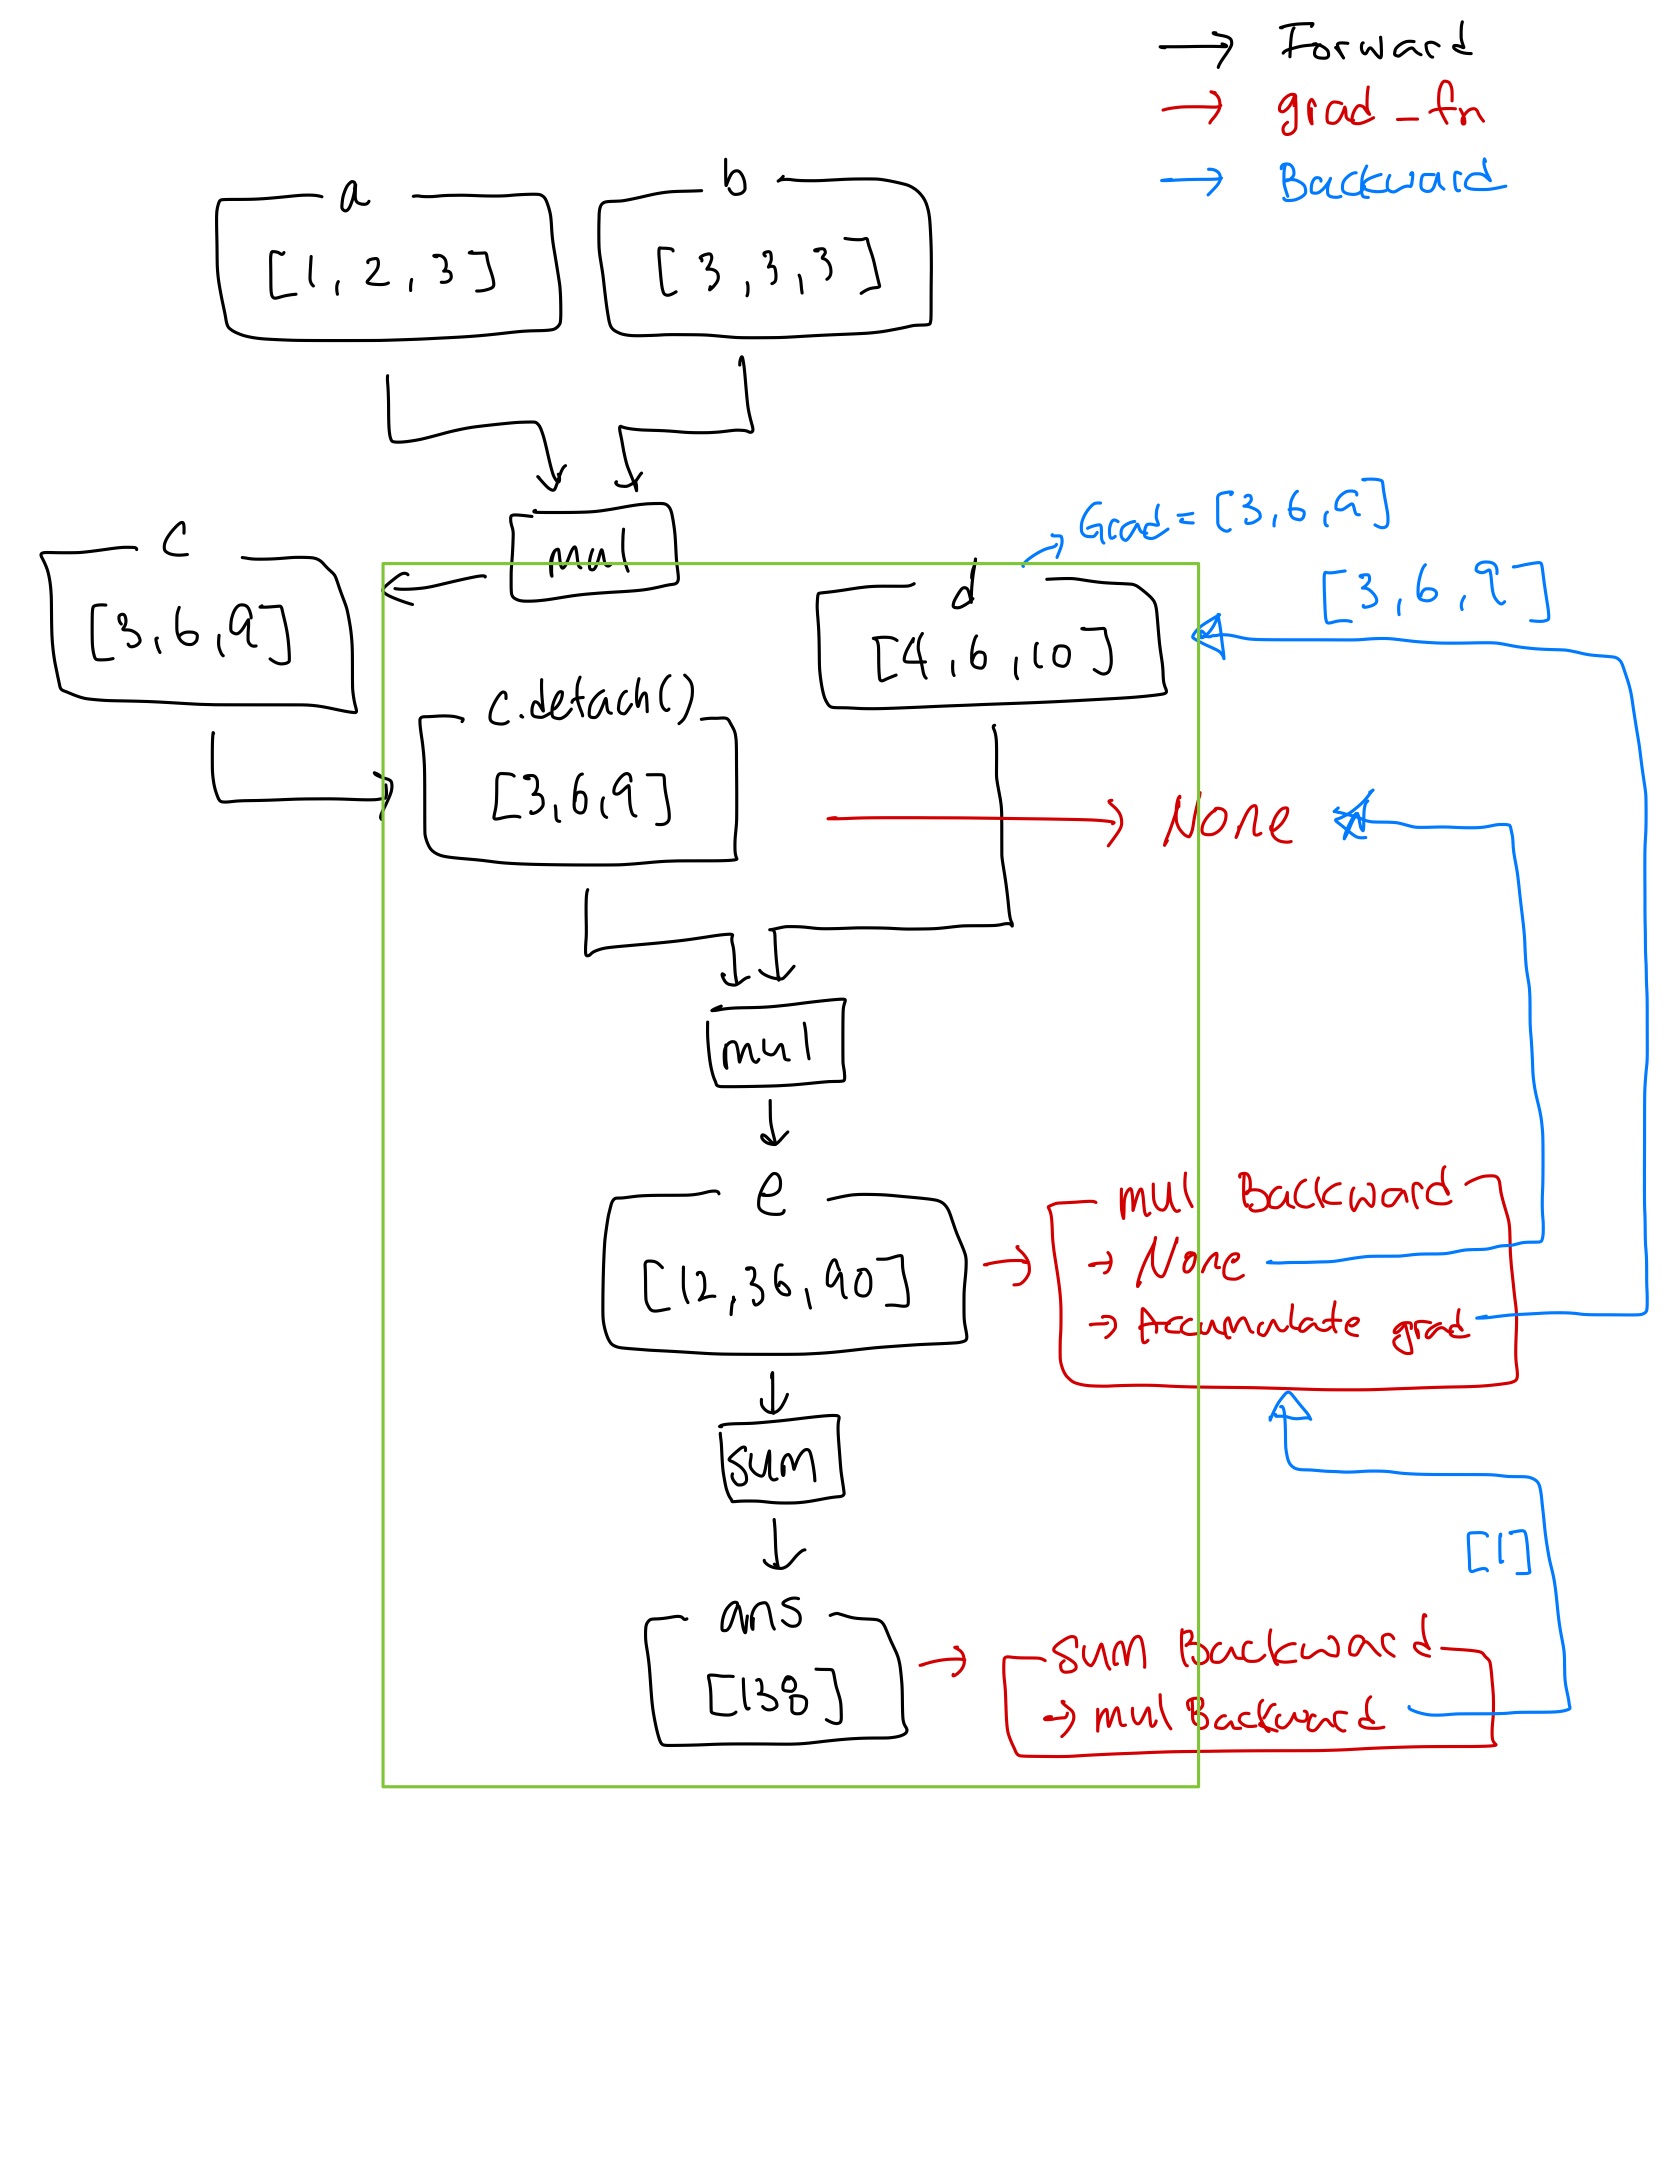 Forward
grad_fn
Backward
a
[1, 2, 3]
b
[3, 3, 3]
mul
c
[3, 6, 9]
Grad = [3, 6, 9]
d
[4, 6, 10]
[3, 6, 9]
c.detach()
[3, 6, 9]
None
mul
e
[12, 36, 90]
mul Backward
→ None
→ Accumulate grad
sum
[1]
ans
[138]
sum Backward
→ mul Backward